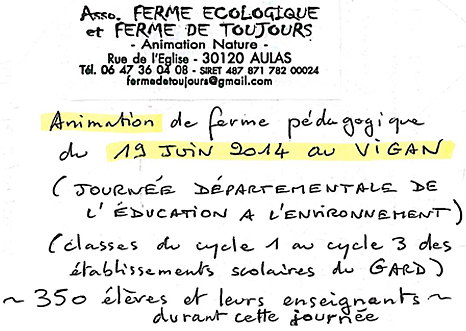 Asso. FERME ECOLOGIQUE
et FERME DE TOUJOURS
- Animation Nature -
Rue de l'Eglise - 30120 AULAS
Tél. 06 47 36 04 08 - SIRET 487 871 782 00024
fermedetoujours@gmail.com
Animation de ferme pédagogique
du 19 JUIN 2014 au VIGAN
(JOURNÉE DÉPARTEMENTALE DE
L'ÉDUCATION A L'ENVIRONNEMENT)
(classes du cycle 1 au cycle 3 des
établissements scolaires du GARD)
~ 350 élèves et leurs enseignants ~
durant cette journée